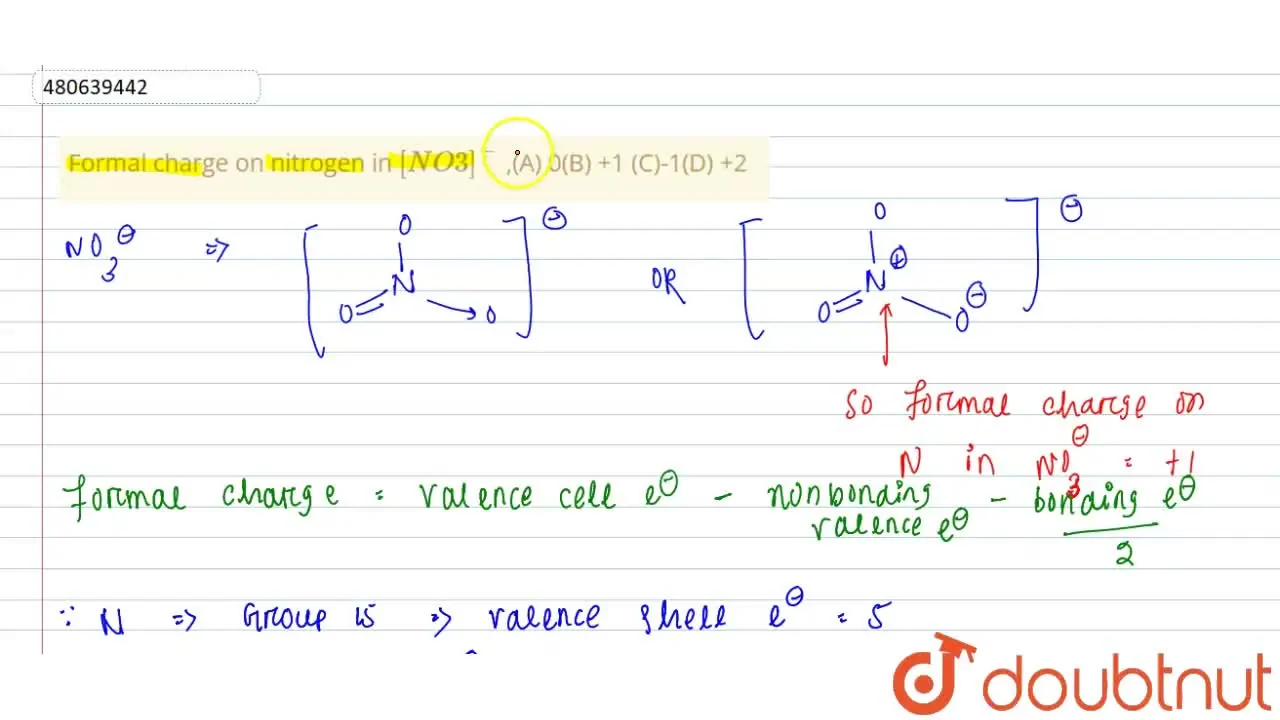 480639442
Formal charge on nitrogen in [NO3]⁻ ,(A) 0(B) +1 (C)-1(D) +2
NO₃⊖ ⇒ [O N O O]⊖ OR [O N⊕ O O⊖]⊖
So formal charge on
N in NO₃⊖ = +1
formal charge = valence cell e⊖ - nonbonding valence e⊖ - bonding e⊖ / 2
∵ N ⇒ Group 15 ⇒ valence shell e⊖ = 5
doubtnut